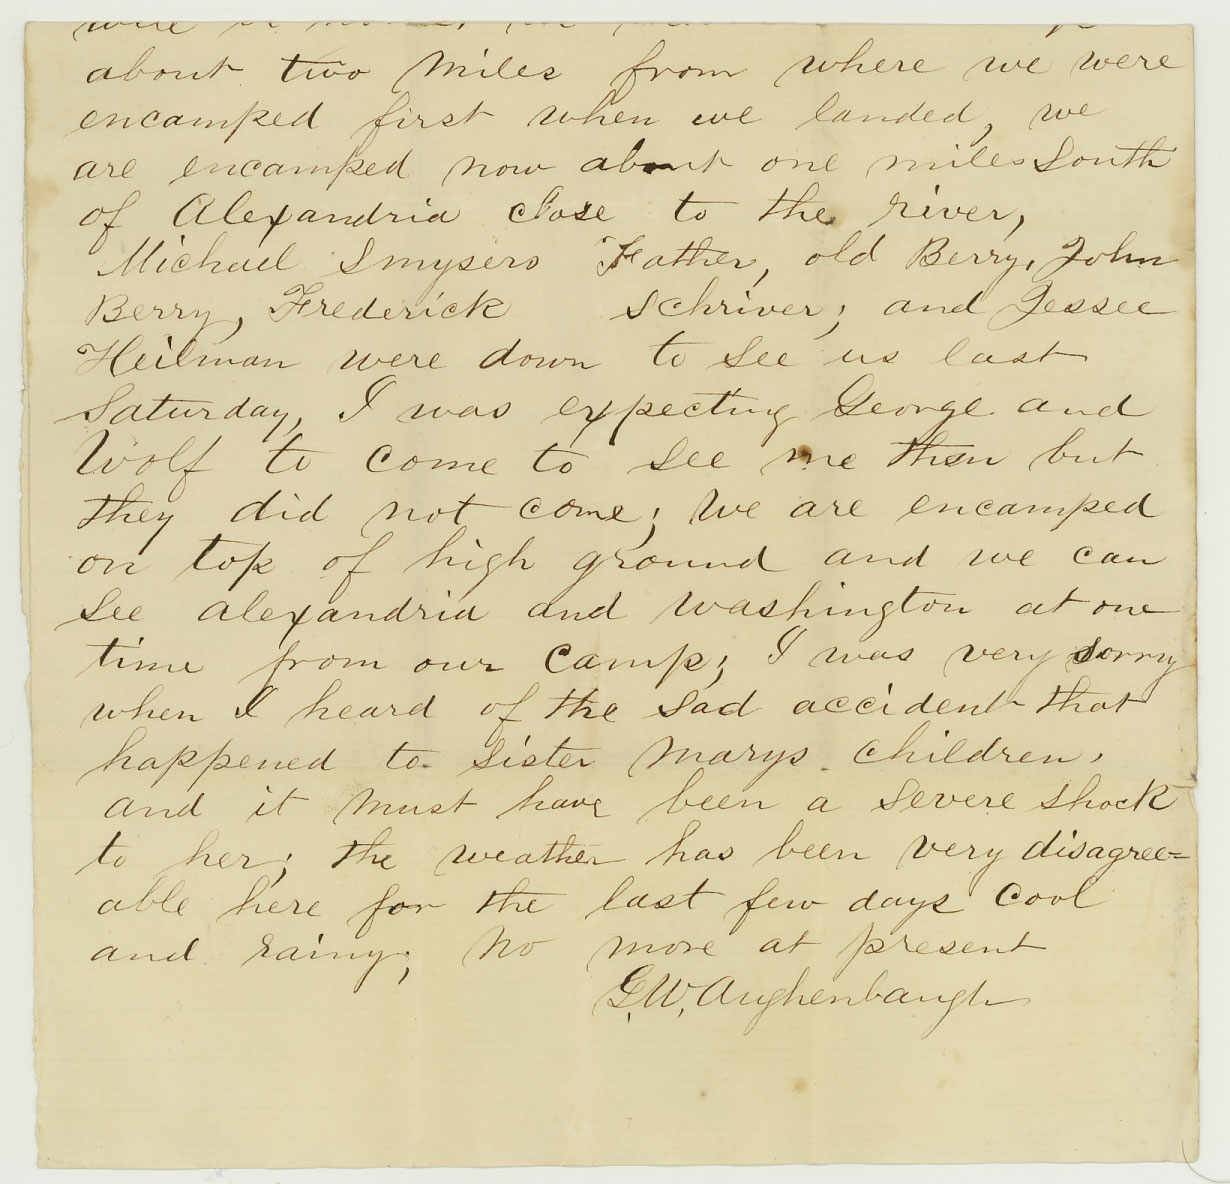 about two miles from where we were
encamped first when we landed, we
are encamped now about one miles South
of Alexandria close to the river,
Michael Smysers Father, old Berry, John
Berry, Frederick Schriver; and Jessee
Heilman were down to See us last
Saturday, I was expecting George and
Wolf to come to see me then but
they did not come; We are encamped
on top of high ground and we can
See alexandria and Washington at one
time from our Camp; I was very sorry
when I heard of the sad accident that
happened to Sister Marys children,
and it must have been a severe shock
to her; the weather has been very disagree=
able here for the last few days Cool
and rainy; No more at present
G. W. Aughenbaugh